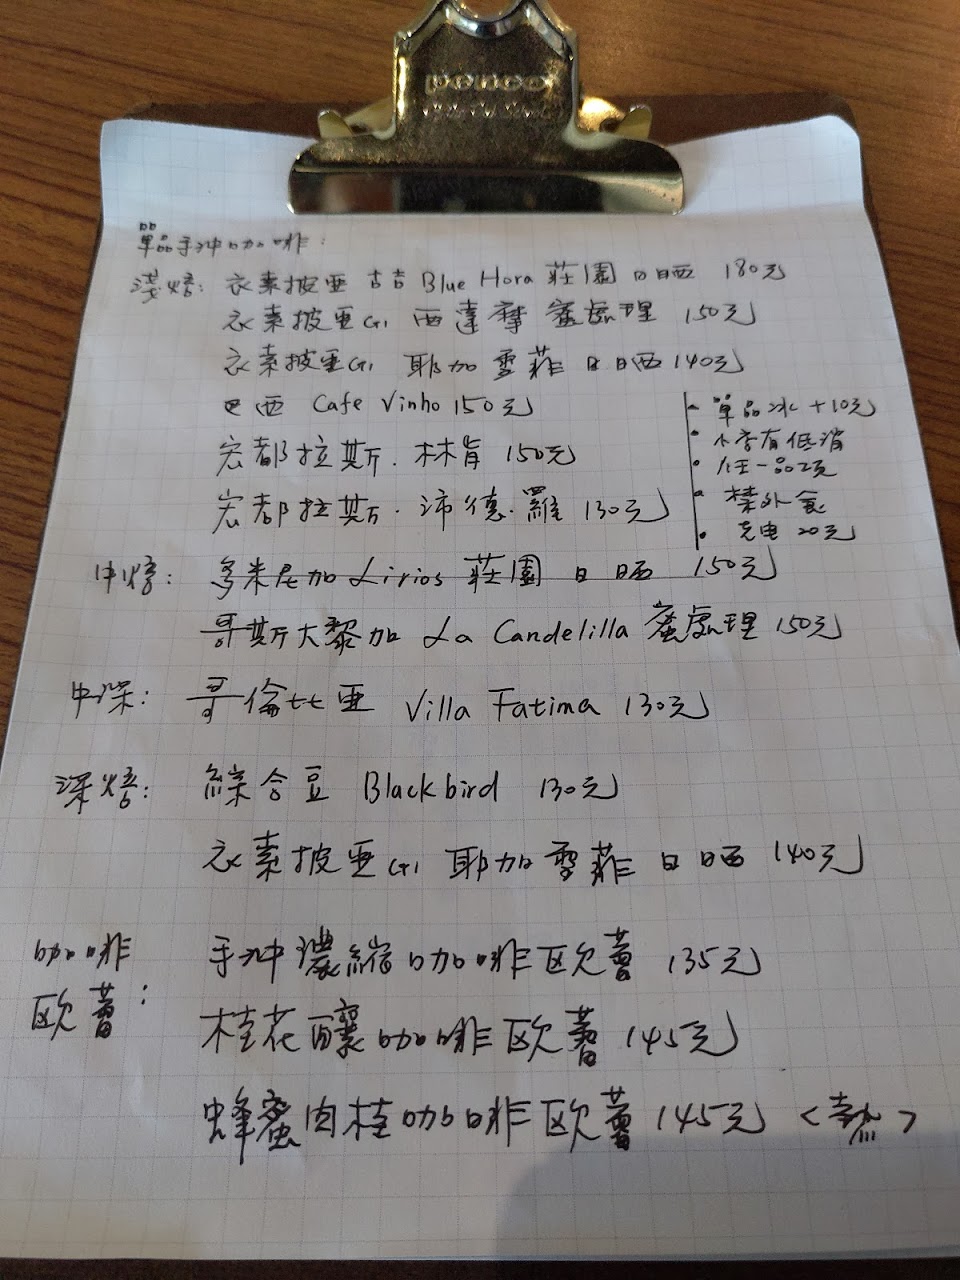 penco
單品手沖咖啡:
淺焙: 衣索披亞 古吉 Blue Hora 莊園 日晒 180元
衣索披亞G1 西達摩 蜜處理 150元
衣索披亞G1 耶加雪菲 日晒 140元
巴西 Cafe Vinho 150元
宏都拉斯. 林肯 150元
宏都拉斯. 沛德.羅 130元
• 單品冰 +10元
• 本店有低消
• 任一品項
• 禁外食
• 充电 20元
中焙: 多米尼加 Lirios 莊園 日晒 150元
哥斯大黎加 La Candelilla 蜜處理 150元
中深: 哥倫比亞 Villa Fatima 130元
深焙: 綜合豆 Blackbird 130元
衣索披亞G1 耶加雪菲 日晒 140元
咖啡歐蕾: 手沖濃縮咖啡欧蕾 135元
桂花釀咖啡欧蕾 145元
蜂蜜肉桂咖啡欧蕾 145元 <熱>